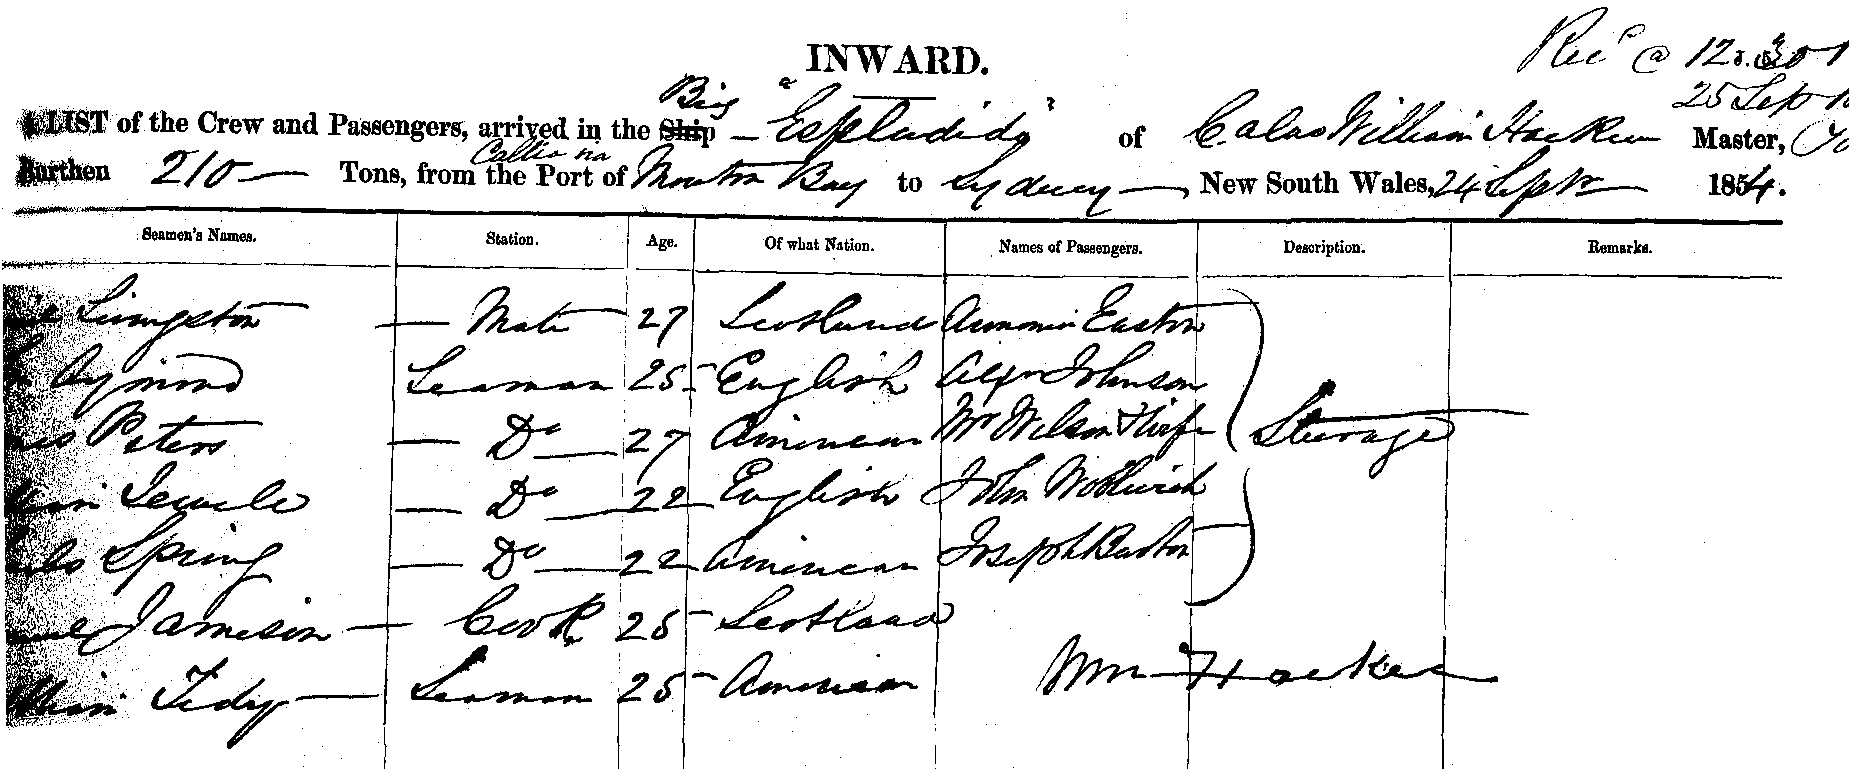 INWARD.
Rec^d @ 12.30
25 Sep
Brig
LIST of the Crew and Passengers, arrived in the Ship — "Espladida" of Calao William Hacken Master,
Callao via
Burthen 210 — Tons, from the Port of Moreton Bay to Sydney — New South Wales, 24 Septr — 1854.
Seamen's Names. Station. Age. Of what Nation. Names of Passengers. Description. Remarks.
Livingston — Mate 27 Scotland Easton
Seaman 25 English Alexr Johnson
Peters — Do — 27 American Mr Wilson & Wife Steerage
— Do — 22 English John
Spring — Do — 22 American Joseph Barton
Jameson — Cook 25 Scotland
Tidy — Seaman 25 American Wm Hacken